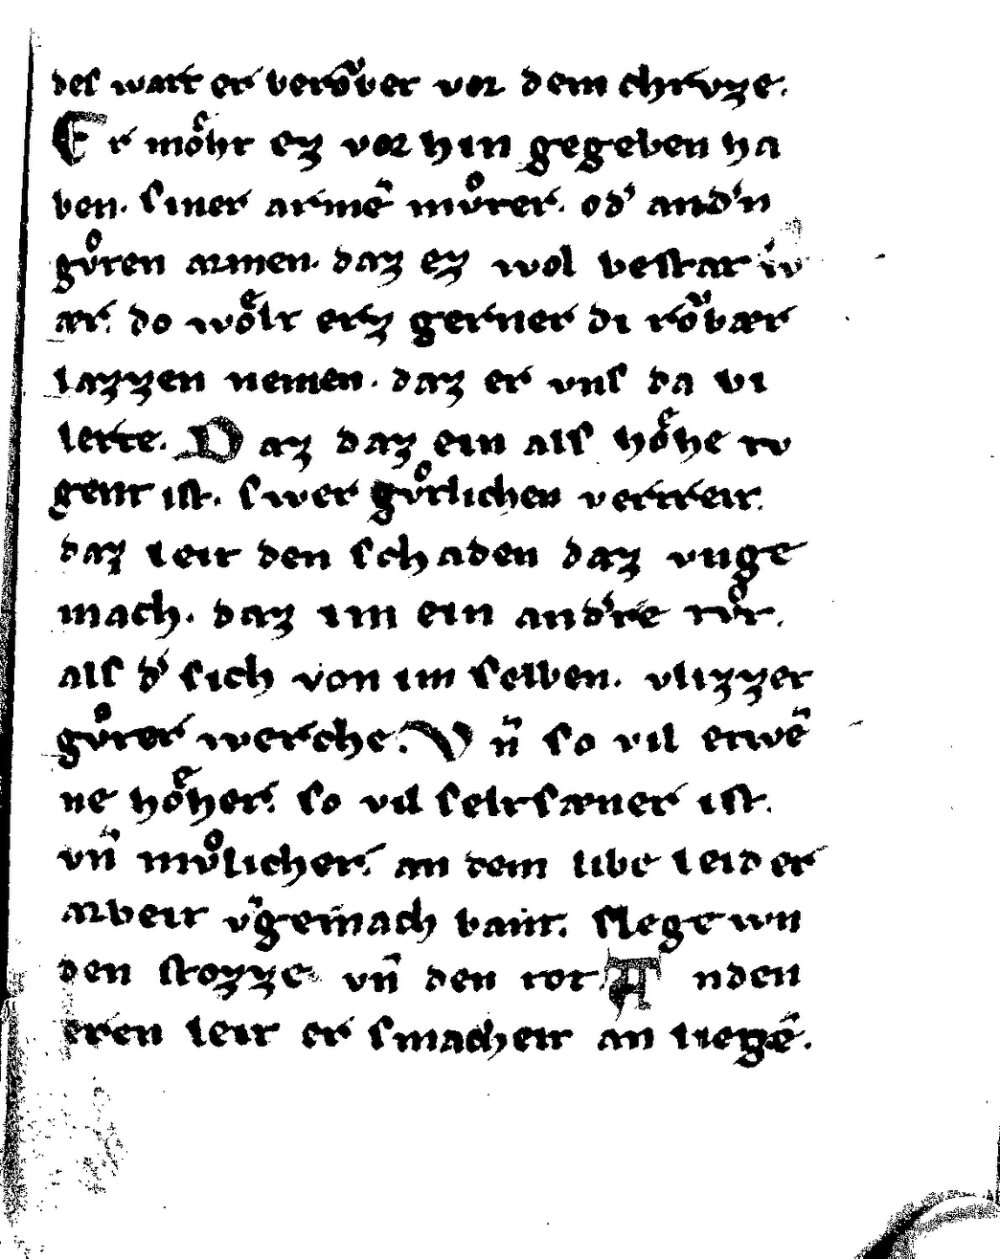 des wart er berovͮbet vor dem chrvze.
Er moͤht ez vor hin gegeben ha
ben. siner armē mvͦter. od' and'n
gvͦten armen. daz ez wol bestat w
ær. do woͤlt erz gerner di roͮbær
lazzen nemen. daz er vns da bi
lerte. Daz daz ein als hoͤhe tv
gent ist. swer gvͦtlichen vertreit.
daz leit den schaden daz vnge
mach. daz im ein and're tvͦt.
als d' sich von im selben. vlizzet
gvͦter werche. Vn̄ so vil etwē
ne hoͤher. so vil seltsæner ist.
vn̄ mvͦlicher. an dem libe leider
arbeit v'gemach bant. slege wn
den stozze vn̄ den tot. An den
eren leit er smacheit an liegē.